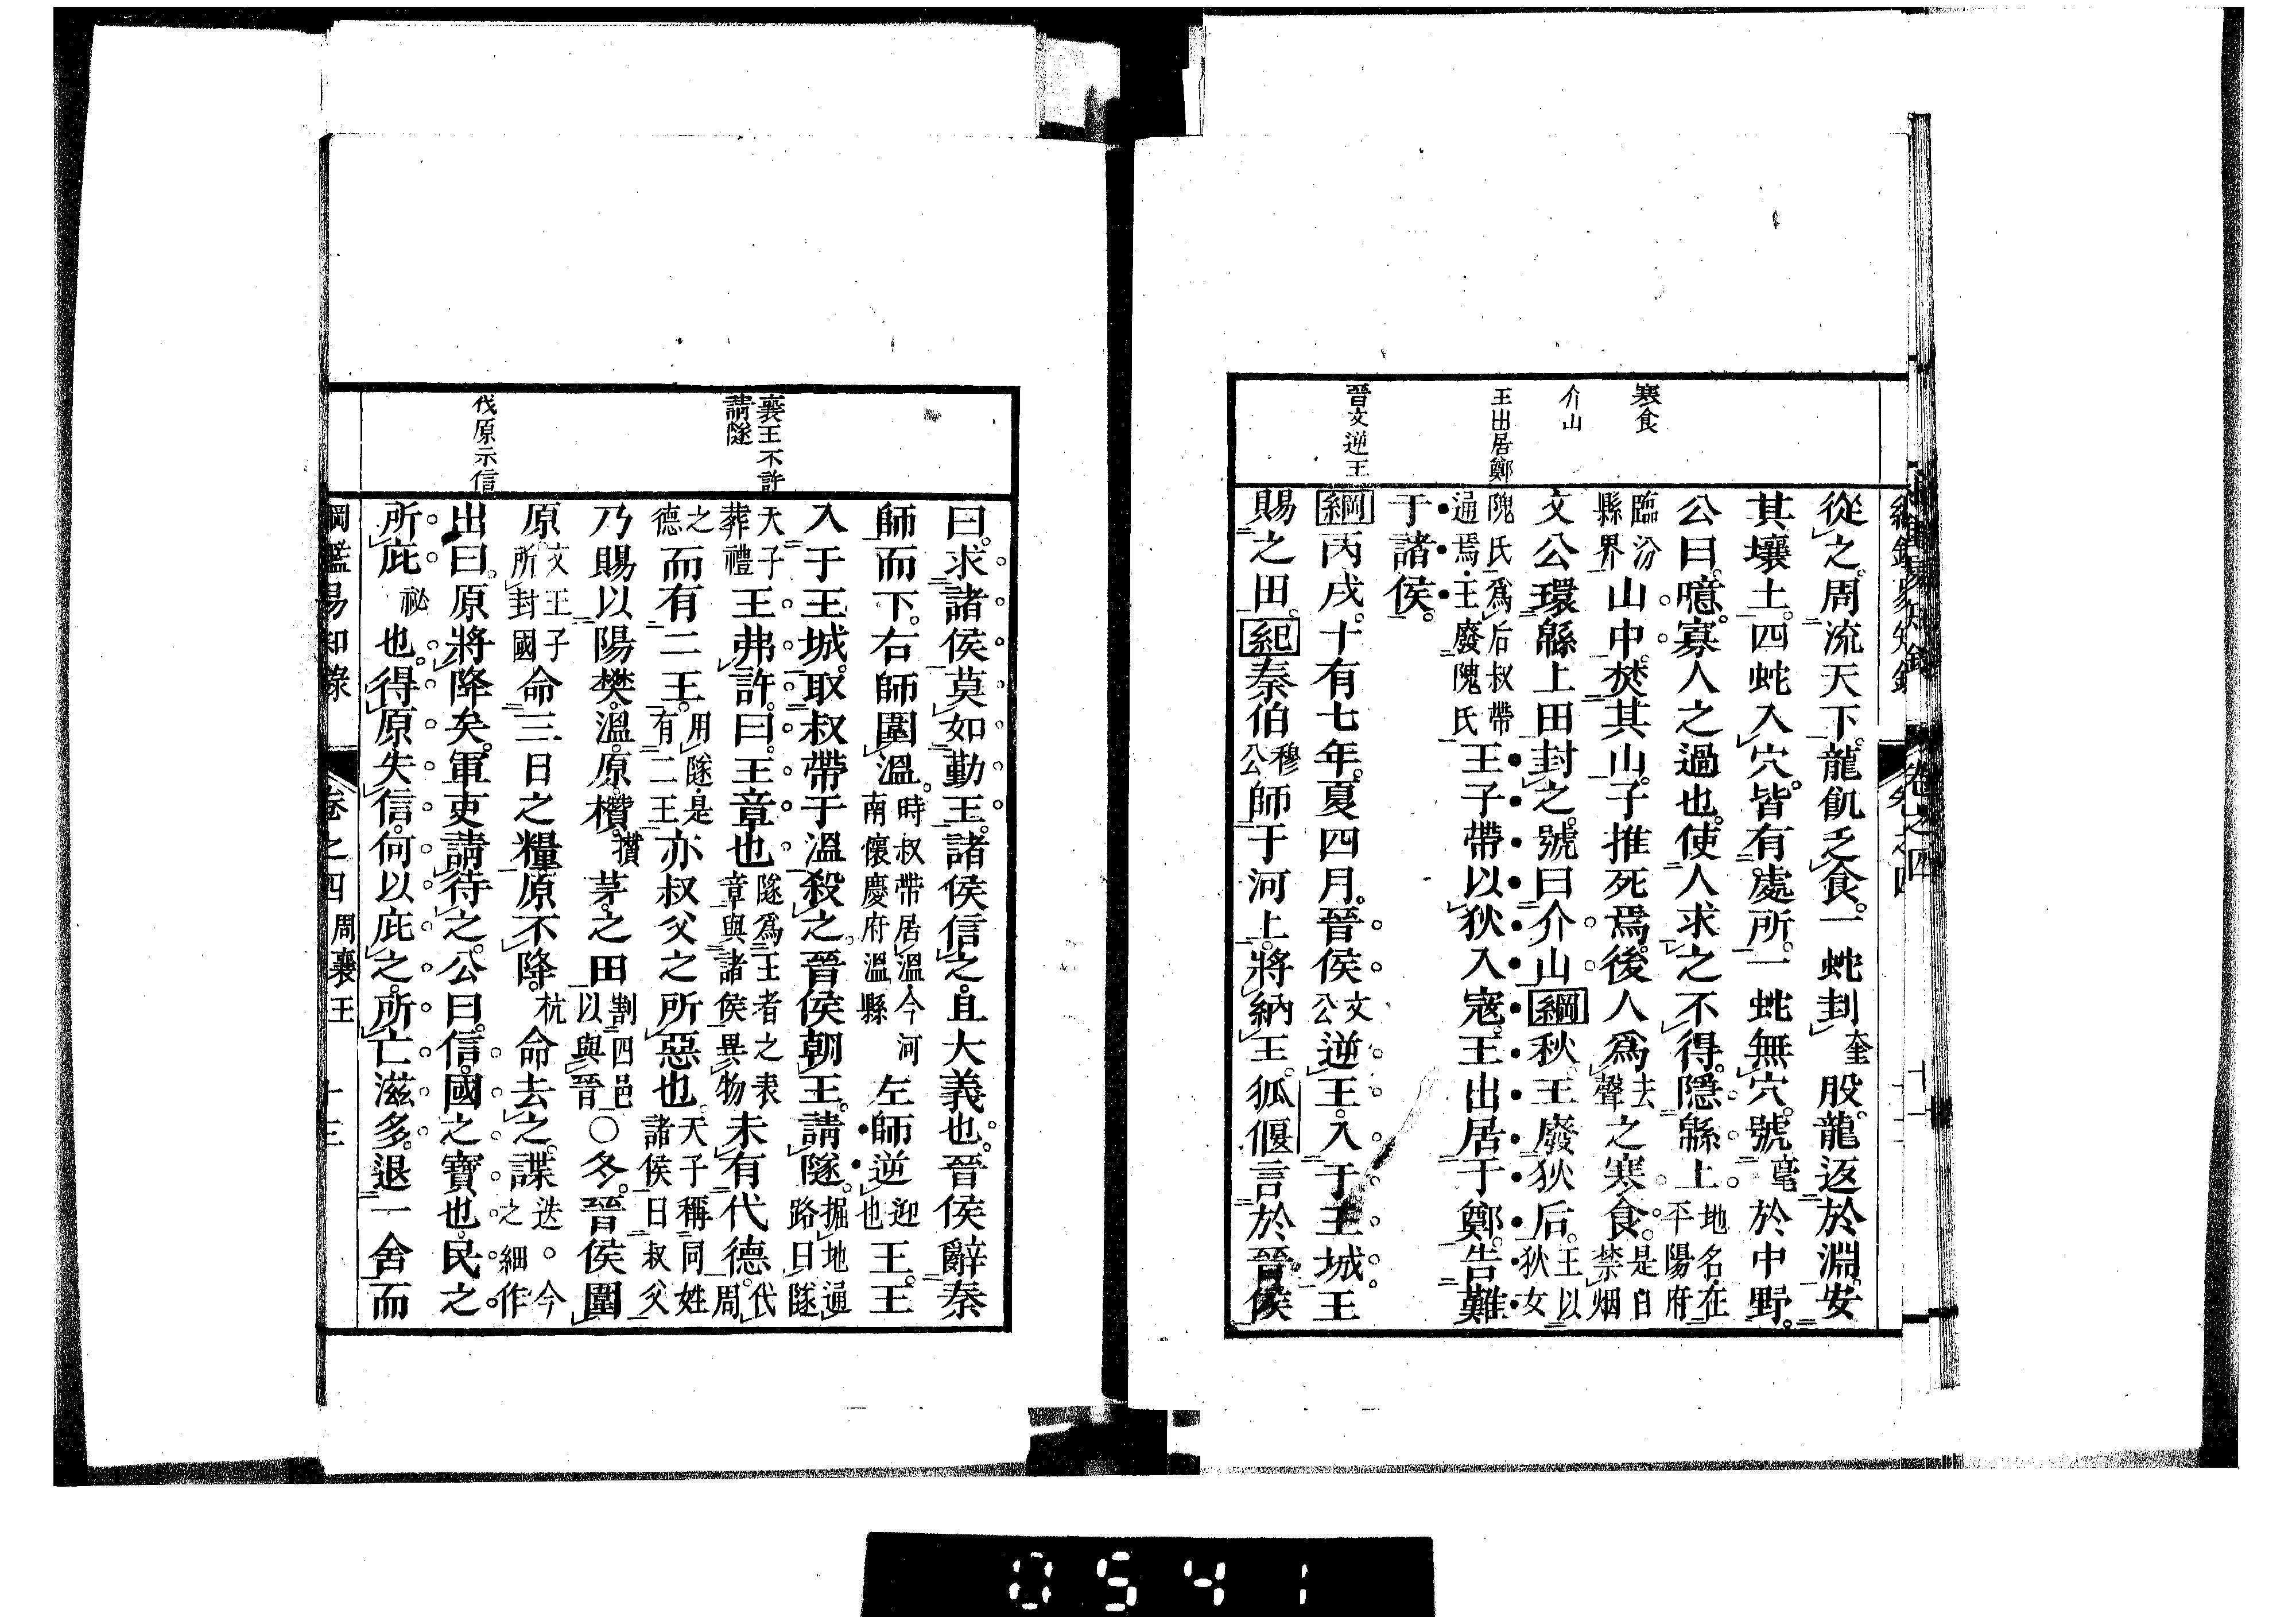 寒食
介山
王出居鄭
晉文逆王
從之周流天下龍飢乏食一蛇刲奎股龍返於淵安
其壤土四蛇入穴皆有處所一蛇無穴號毫於中野
公曰噫寡人之過也使人求之不得隱緜上地名在平陽府
臨汾縣界山中焚其山子推死焉後人爲去聲之寒食是日禁烟
文公環緜上田封之號曰介山綱秋王廢狄后王以狄女
隗氏爲后叔帶通焉王廢隗氏王子帶以狄入寇王出居于鄭告難
于諸侯
綱丙戌十有七年夏四月晉侯文公逆王入于王城王
賜之田紀秦伯穆公師于河上將納王狐偃言於晉侯
襄王不許請隧
伐原示信
曰求諸侯莫如勤王諸侯信之且大義也晉侯辭秦
師而下右師圍溫時叔帶居溫今河南懷慶府溫縣左師逆迎也王王
入于王城取叔帶于溫殺之晉侯朝王請隧掘地通路曰隧
天子葬禮王弗許曰王章也隧爲王者之表章與諸侯異物未有代德代周
之德而有二王用隧是有二王亦叔父之所惡也天子稱同姓諸侯曰叔父
乃賜以陽樊溫原欑攢茅之田割四邑以與晉○冬晉侯圍
原文王子所封國命三日之糧原不降杭命去之諜迭今之細作
出曰原將降矣軍吏請待之公曰信國之寶也民之
所庇祕也得原失信何以庇之所亡滋多退一舍而
綱鑑易知錄 卷之四 周襄王 十三